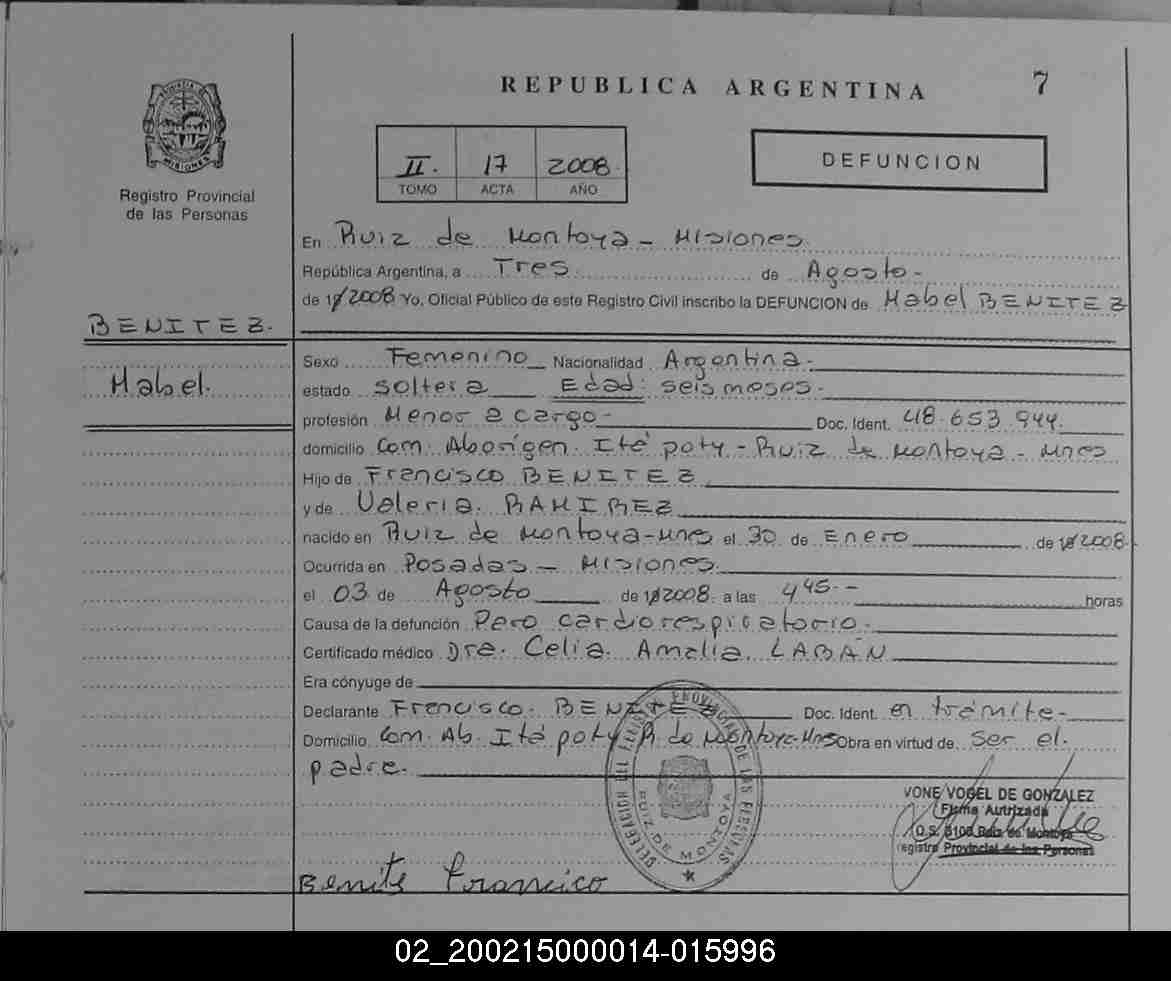 REPUBLICA ARGENTINA 7
PROVINCIA DE MISIONES
Registro Provincial
de las Personas
II. 17 2008
TOMO ACTA AÑO
DEFUNCION
En Ruiz de Montoya - Misiones
República Argentina, a Tres de Agosto -
de 19/2008 Yo, Oficial Público de este Registro Civil inscribo la DEFUNCION de Mabel BENITEZ
BENITEZ.
Mabel.
Sexo Femenino Nacionalidad Argentina -
estado soltera Edad: seis meses -
profesión Menor a cargo - Doc. Ident. 48.653.944.
domicilio Com. Aborigen Ité poty - Ruiz de Montoya - Mnes
Hijo de Francisco BENITEZ
y de Valeria RAMIREZ
nacido en Ruiz de Montoya - Mnes el 30 de Enero de 19 2008-
Ocurrida en Posadas - Misiones.
el 03 de Agosto de 19 2008 a las 4 45 - horas
Causa de la defunción Paro cardiorespiratorio -
Certificado médico Dra. Celia Amalia LABAN
Era cónyuge de
Declarante Francisco BENITEZ Doc. Ident. en trámite -
Domicilio Com. Ab. Ité poty R. de Montoya-Mnes Obra en virtud de ser el
padre.
DELEGACION DEL REGISTRO PROVINCIAL DE LAS PERSONAS
RUIZ DE MONTOYA
VONE VOGEL DE GONZALEZ
Firma Autrizada
O.S. 3103 Ruiz de Montoya
registro Provincial de las Personas
Benite Francico
02_200215000014-015996